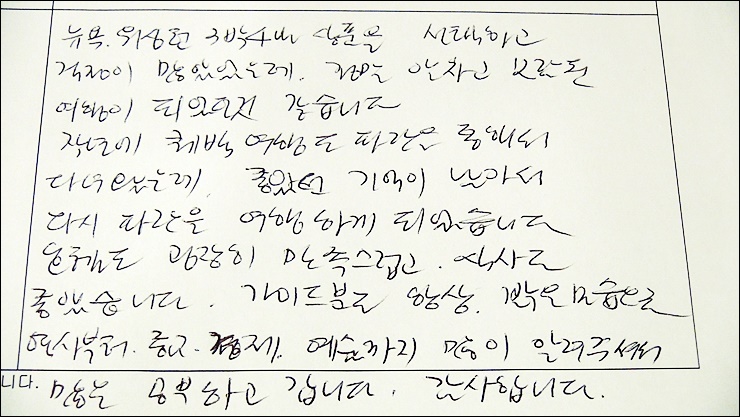 뉴욕. 워싱턴 3박4일 상품을 선택하고
걱정이 많았었는데. 정말 알차고 보람된
여행이 되었던것 같습니다
작년에 퀘벡 여행도 파란을 통해서
다녀왔는데. 좋았던 기억이 남아서
다시 파란을 여행하게 되었습니다
호텔도 굉장히 만족스럽고. 식사도
좋았습니다. 가이드분도 항상. 밝은 모습으로
역사부터. 종교. 경제. 예술까지 많이 알려주셔서
니다. 많은 공부하고 갑니다. 감사합니다.